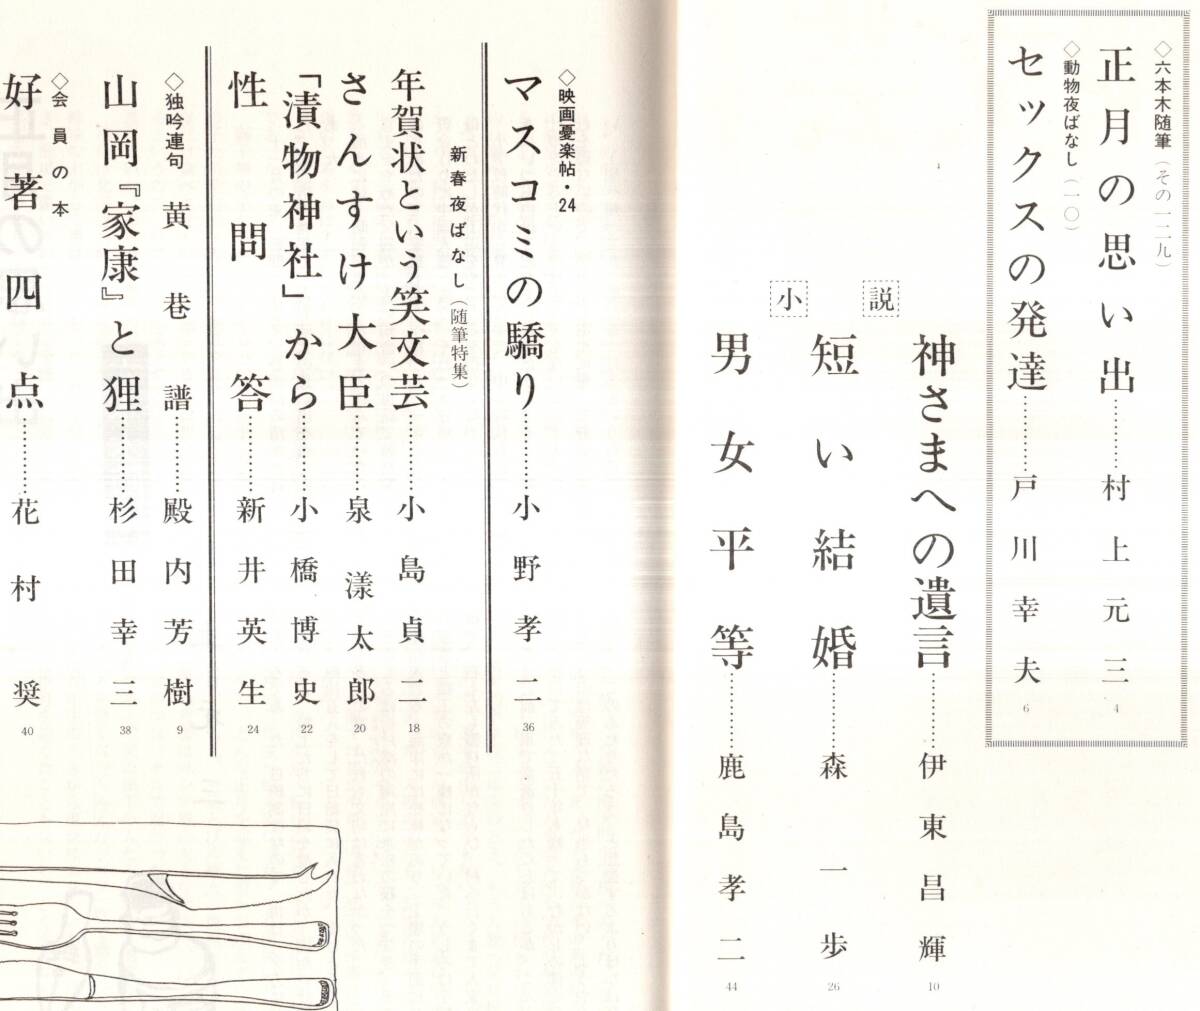 ◇六本木随筆（その一二九）
正月の思い出……村上元三 4
◇動物夜ばなし（一〇）
セックスの発達……戸川幸夫 6
小説
神さまへの遺言……伊東昌輝 10
短い結婚……森一歩 26
男女平等……鹿島孝二 44
◇映画憂楽帖・24
マスコミの驕り……小野孝二 36
新春夜ばなし（随筆特集）
年賀状という笑文芸……小島貞二 18
さんすけ大臣……泉漾太郎 20
「漬物神社」から……小橋博史 22
性問答……新井英生 24
◇独吟連句 黄巷譜……殿内芳樹 9
山岡『家康』と狸……杉田幸三 38
◇会員の本
好著四点……花村奨 40